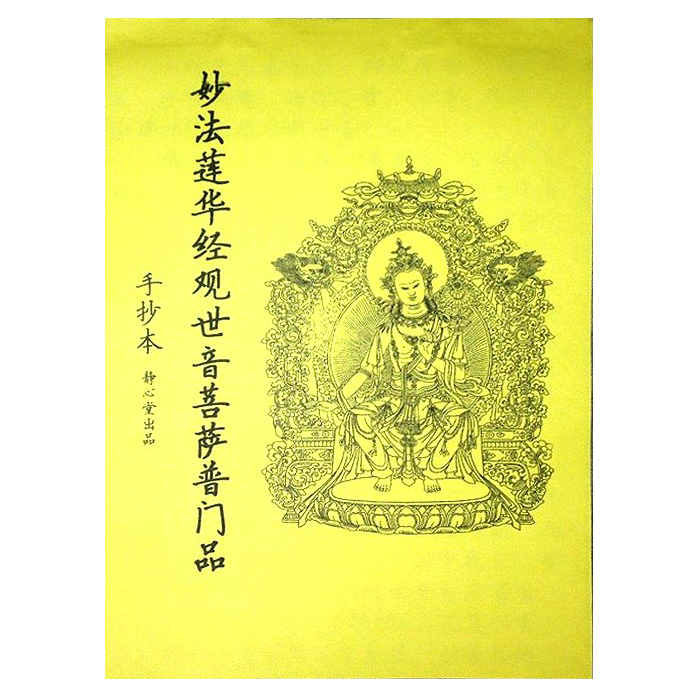 妙法莲华经观世音菩萨普门品
手抄本
静心堂出品